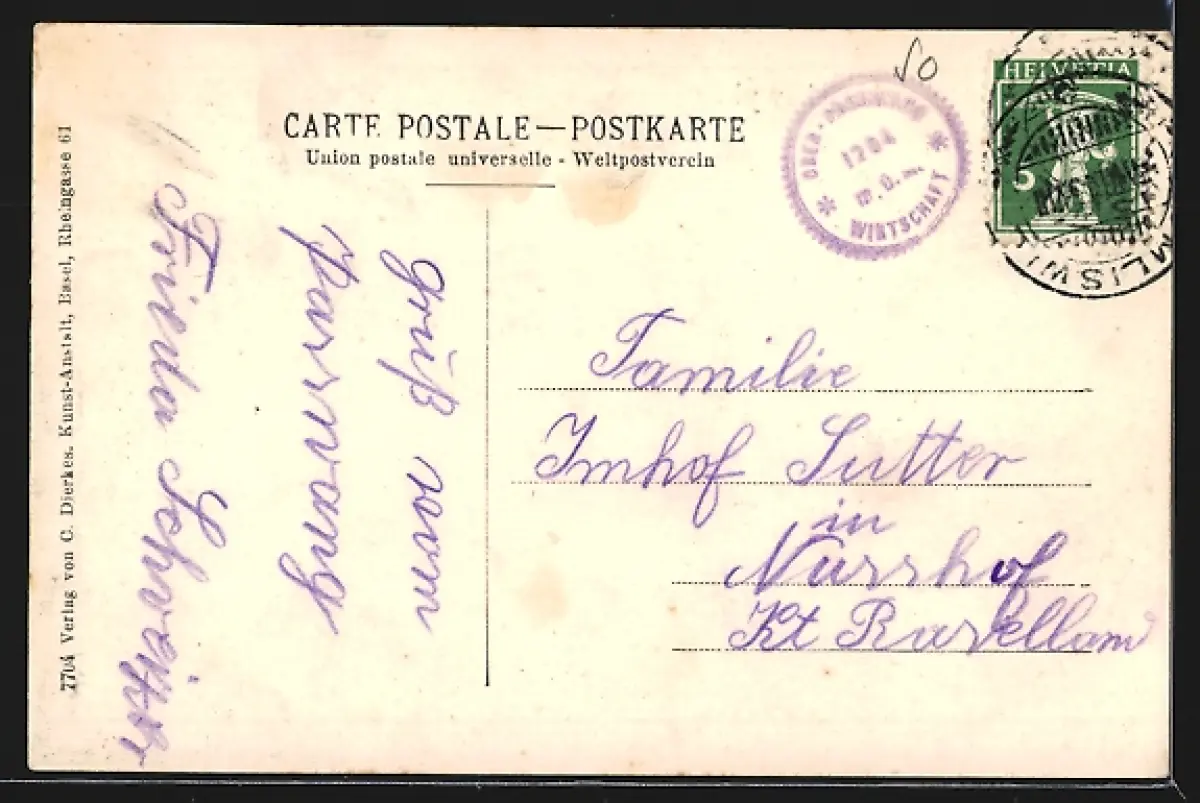 CARTE POSTALE—POSTKARTE
Union postale universelle - Weltpostverein
7704 Verlag von C. Dierkes, Kunst-Anstalt, Basel, Rheingasse 61
Gruß vom
Passwang
Frieda
50
OBER-PASSWANG
1204
m.ü.m.
WIRTSCHAFT
HELVETIA
5
MLISWI
Familie
Imhof Sutter
in
Nusshof
Kt Baselland